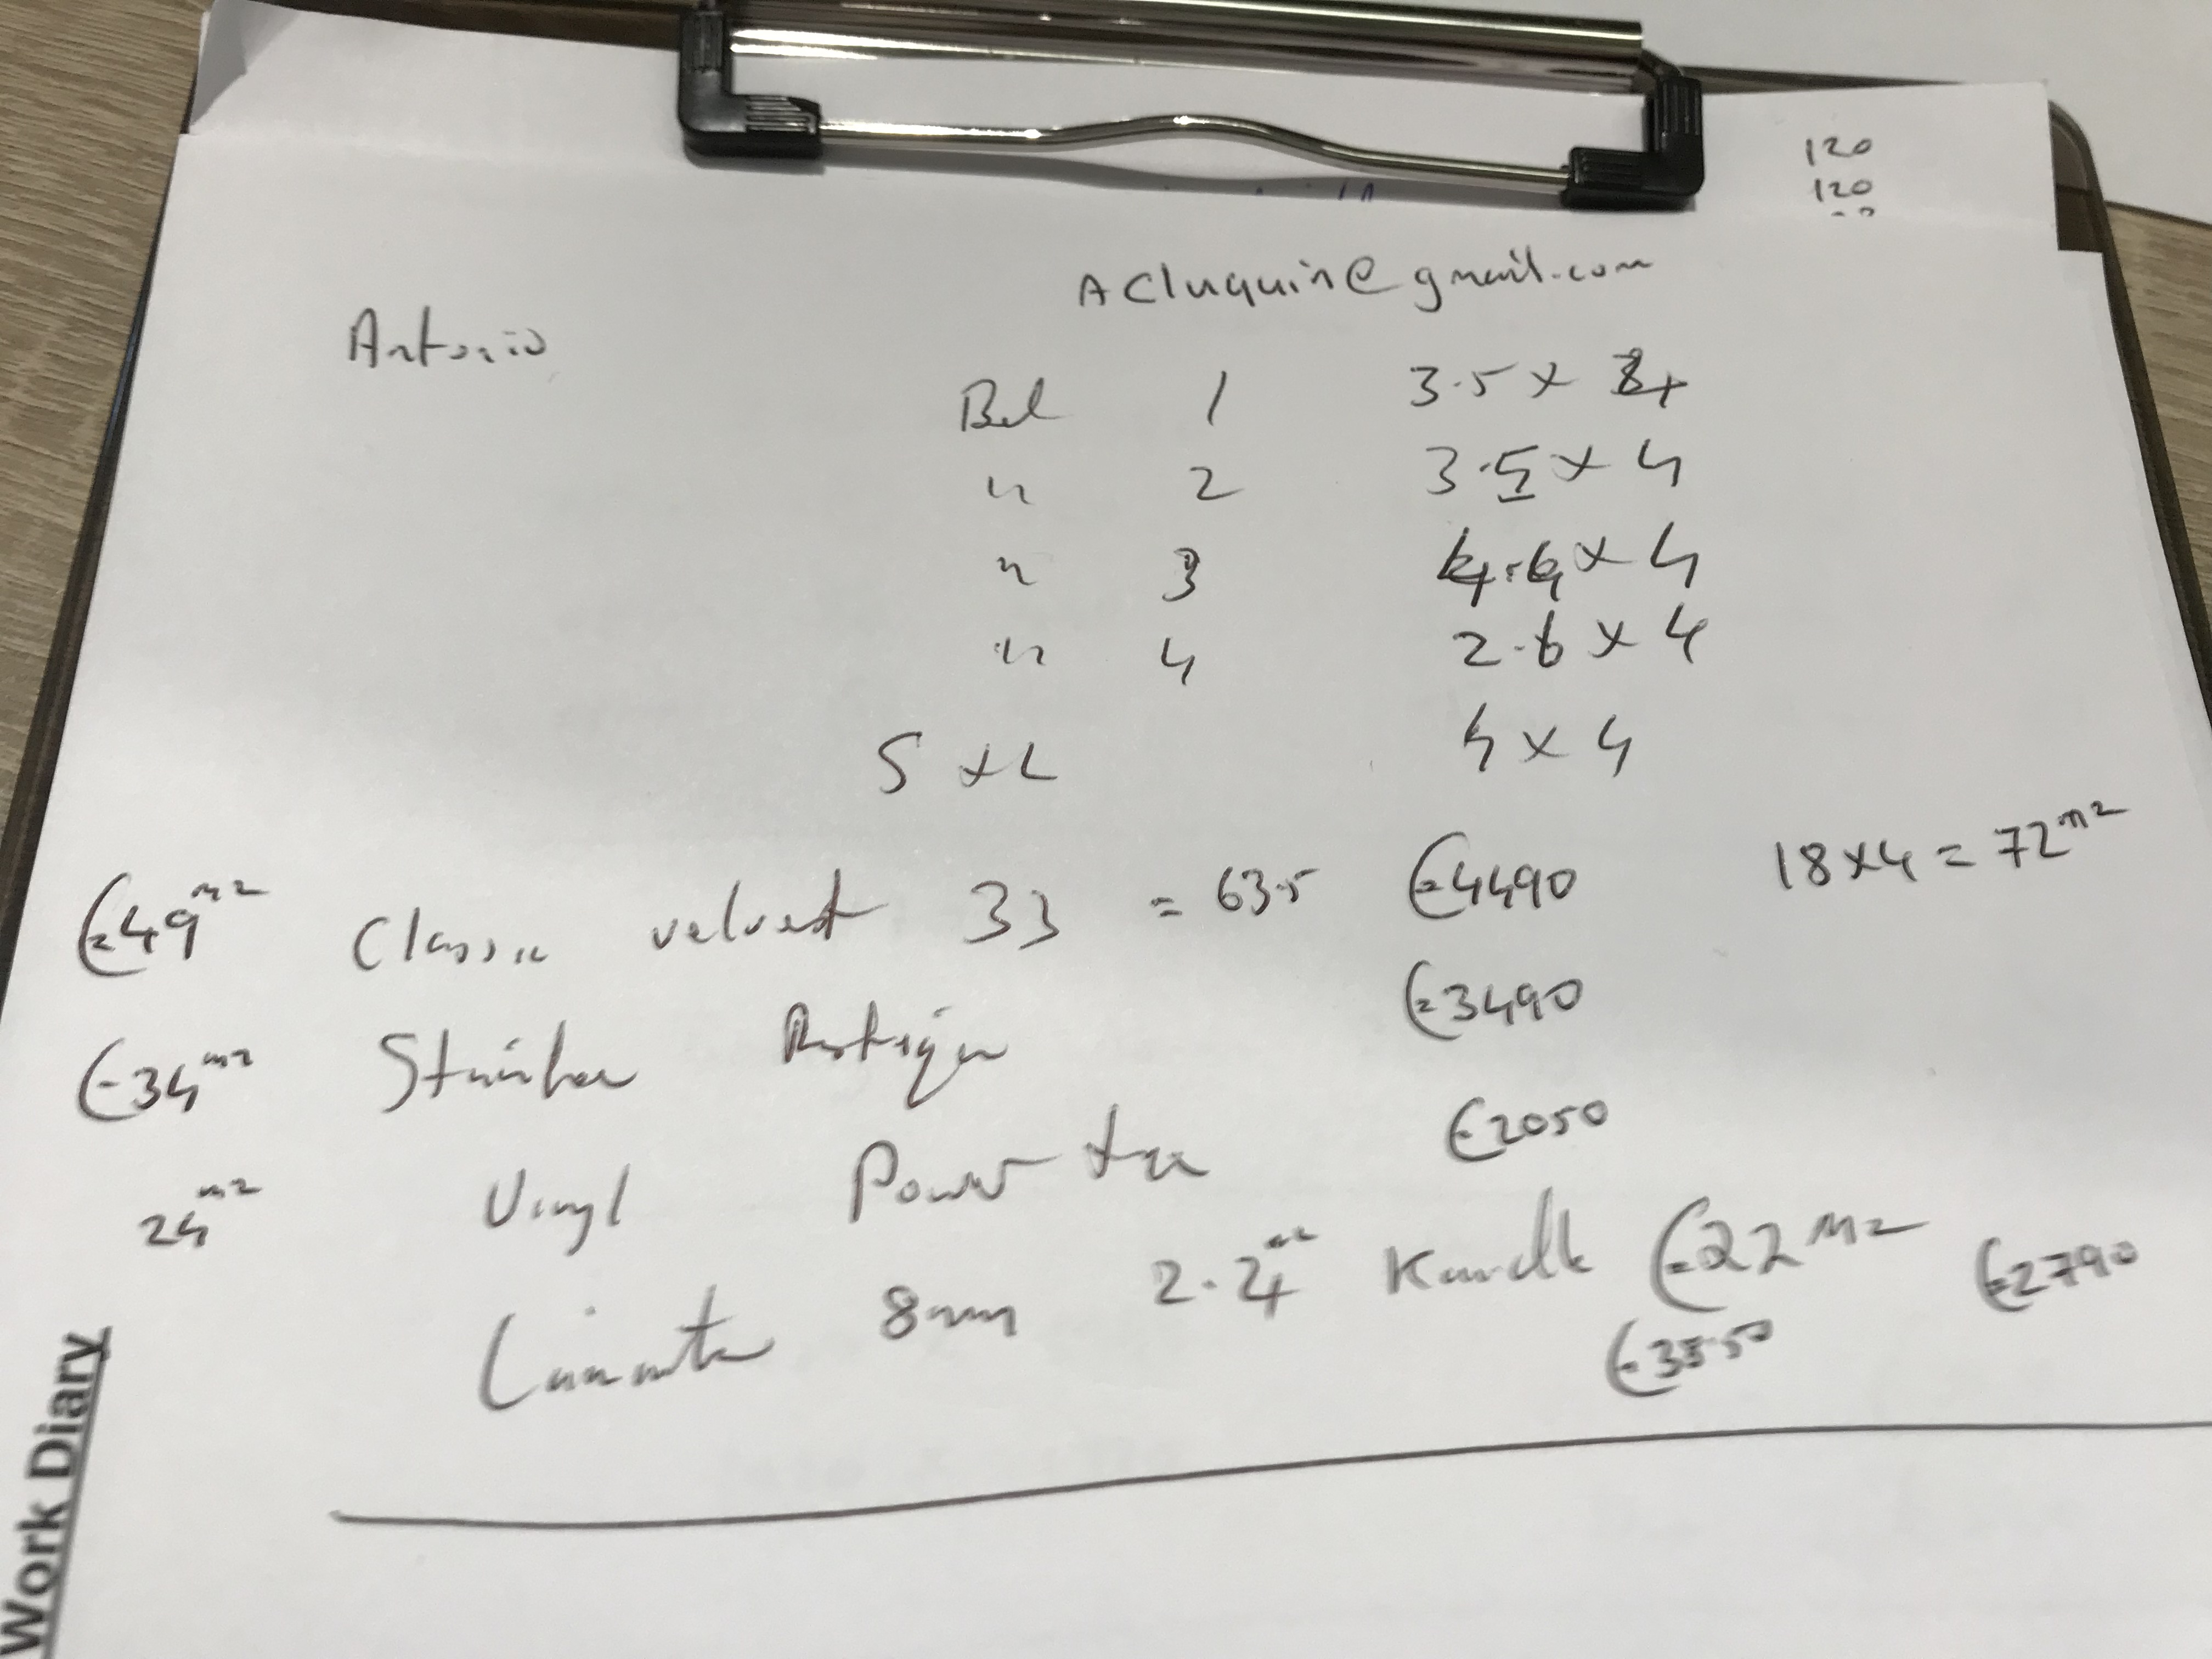 120
120
ACluquin@gmail.com
Antonio
Bed 1 3.5 x 4
" 2 3.5 x 4
" 3 4.4 x 4
" 4 2.6 x 4
S + L 4 x 4
18 x 4 = 72 m2
€49 m2 Classic velvet 33 = 63.5 €4490
€34 m2 €3490
24 m2 Vinyl Power tex €2050
Laminate 8mm 2.24 m2 €22 m2 €2790
€3550
Work Diary